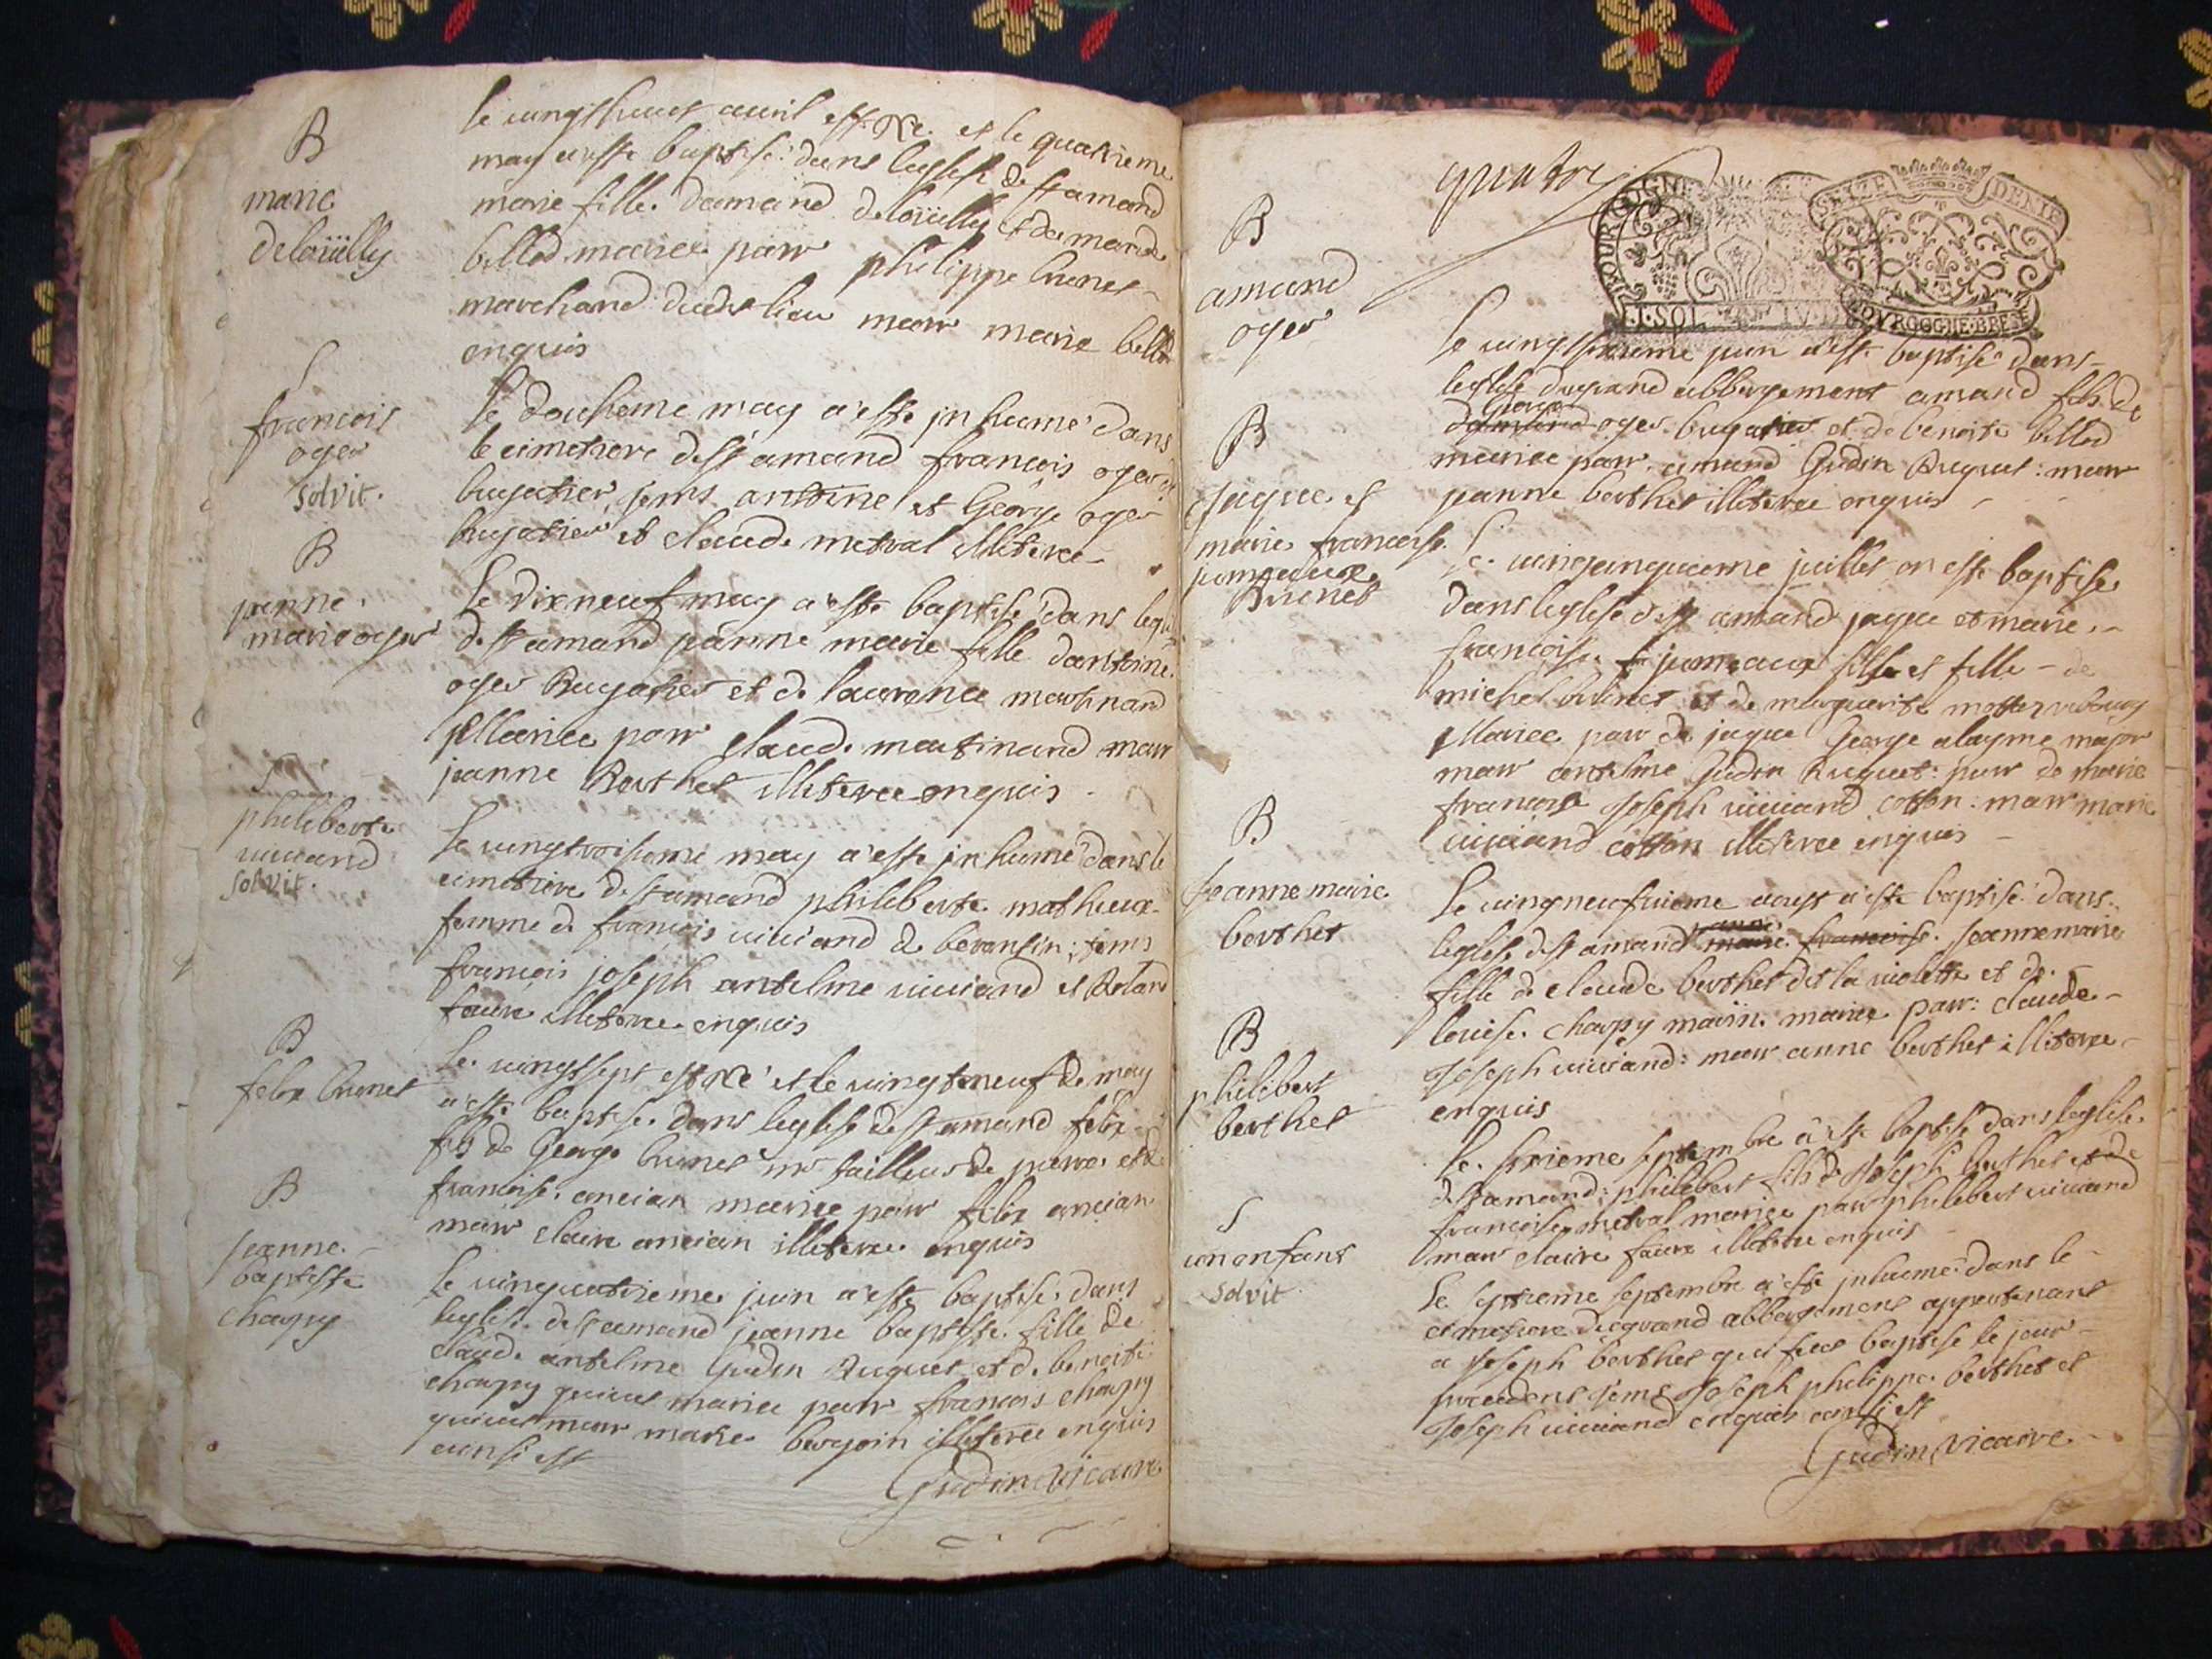 B
marie
deloüilly
le vingthuict avril est Né et le quatrieme
may a esté baptisé dans leglise de st amand
marie fille damand deloüilly et de marie
billod mariee parr philippe brunet
marchand dudit lieu marr marie billod
enquis
S
francois
oger
solvit.
le douzieme may a esté inhumé dans
le cimetiere de st amand francois oger
bugatier tems antoine et George oger
bugatier et claude metral illiteree
B
jeanne
marie oger
le dixneuf may a esté baptisé dans leglise
de st amand jeanne marie fille dantoine
oger Bugatier et de laurence martinand
Mariee parr claude martinand marr
jeanne Berthet illiteree enquis
S
philiberte
viviand
solvit.
le vingtroisieme may a esté inhumé dans le
cimetiere de st amand philiberte mathieux
femme de francois viviand de beransin; tems
francois joseph antelme viviand et Roland
faure illiteree enquis
B
felix brunet
le vingtsept est Né et le vingtneuf de may
a esté baptisé dans leglise de st amand felix
fils de George brunet mr tailleur de pierre et de
francoise ancian mariee parr felix ancian
marr claire ancian illiteree enquis
B
jeanne
baptiste
chappy
le vinquatrieme juin a esté baptisé dans
leglise de st amand jeanne baptiste fille de
claude antelme Gudin Ruguet et de benoite
chappy mariee parr francois chappy
marr marie berjoin illiteree enquis
ainsi est
Gudin Vicaire
quatre
BOURGOGNE
SEIZE DENIE
BOURGOGNE BRESSE
B
amand
oger
le vingtsixieme juin a esté baptisé dans
leglise dugrand abbergement amand fils de
George
oger bugatier et de benoite billod
mariee parr amand Gudin Ruguet: marr
jeanne berthet illiteree enquis
B
jaque et
marie francoise
jumeaux
Brunet
le vingcinquieme juillet on esté baptisés
dans leglise de st amand jaque et marie
francoise jumeaux fils et fille de
michel brunet et de marguerite
Mariee parr de jaque George alayme major
marr antelme Gudin Ruguet: parr de marie
francoise Joseph viviand cotton: marr marie
viviand cotton illiteree enquis
B
jeanne marie
berthet
le vingneufvieme aoust a esté baptisé dans
leglise de st amand marie francoise jeanne marie
fille de claude berthet dit la violette et de
louise chappy mariee parr: claude
Joseph viviand: marr anne berthet illiteree
enquis
B
philibert
berthet
le sixieme septembre a esté baptisé dans leglise
de st amand: philibert fils de Joseph berthet et de
francoise metral mariee parr philibert viviand
marr claire faure illiteree enquis
S
un enfant
solvit
le septieme septembre a esté inhumé dans le
cimetiere dugrand abbergement appartenant
a Joseph berthet qui fut baptisé le jour
precedent tems Joseph philippe berthet et
Joseph viviand enquis ainsi est
Gudin Vicaire